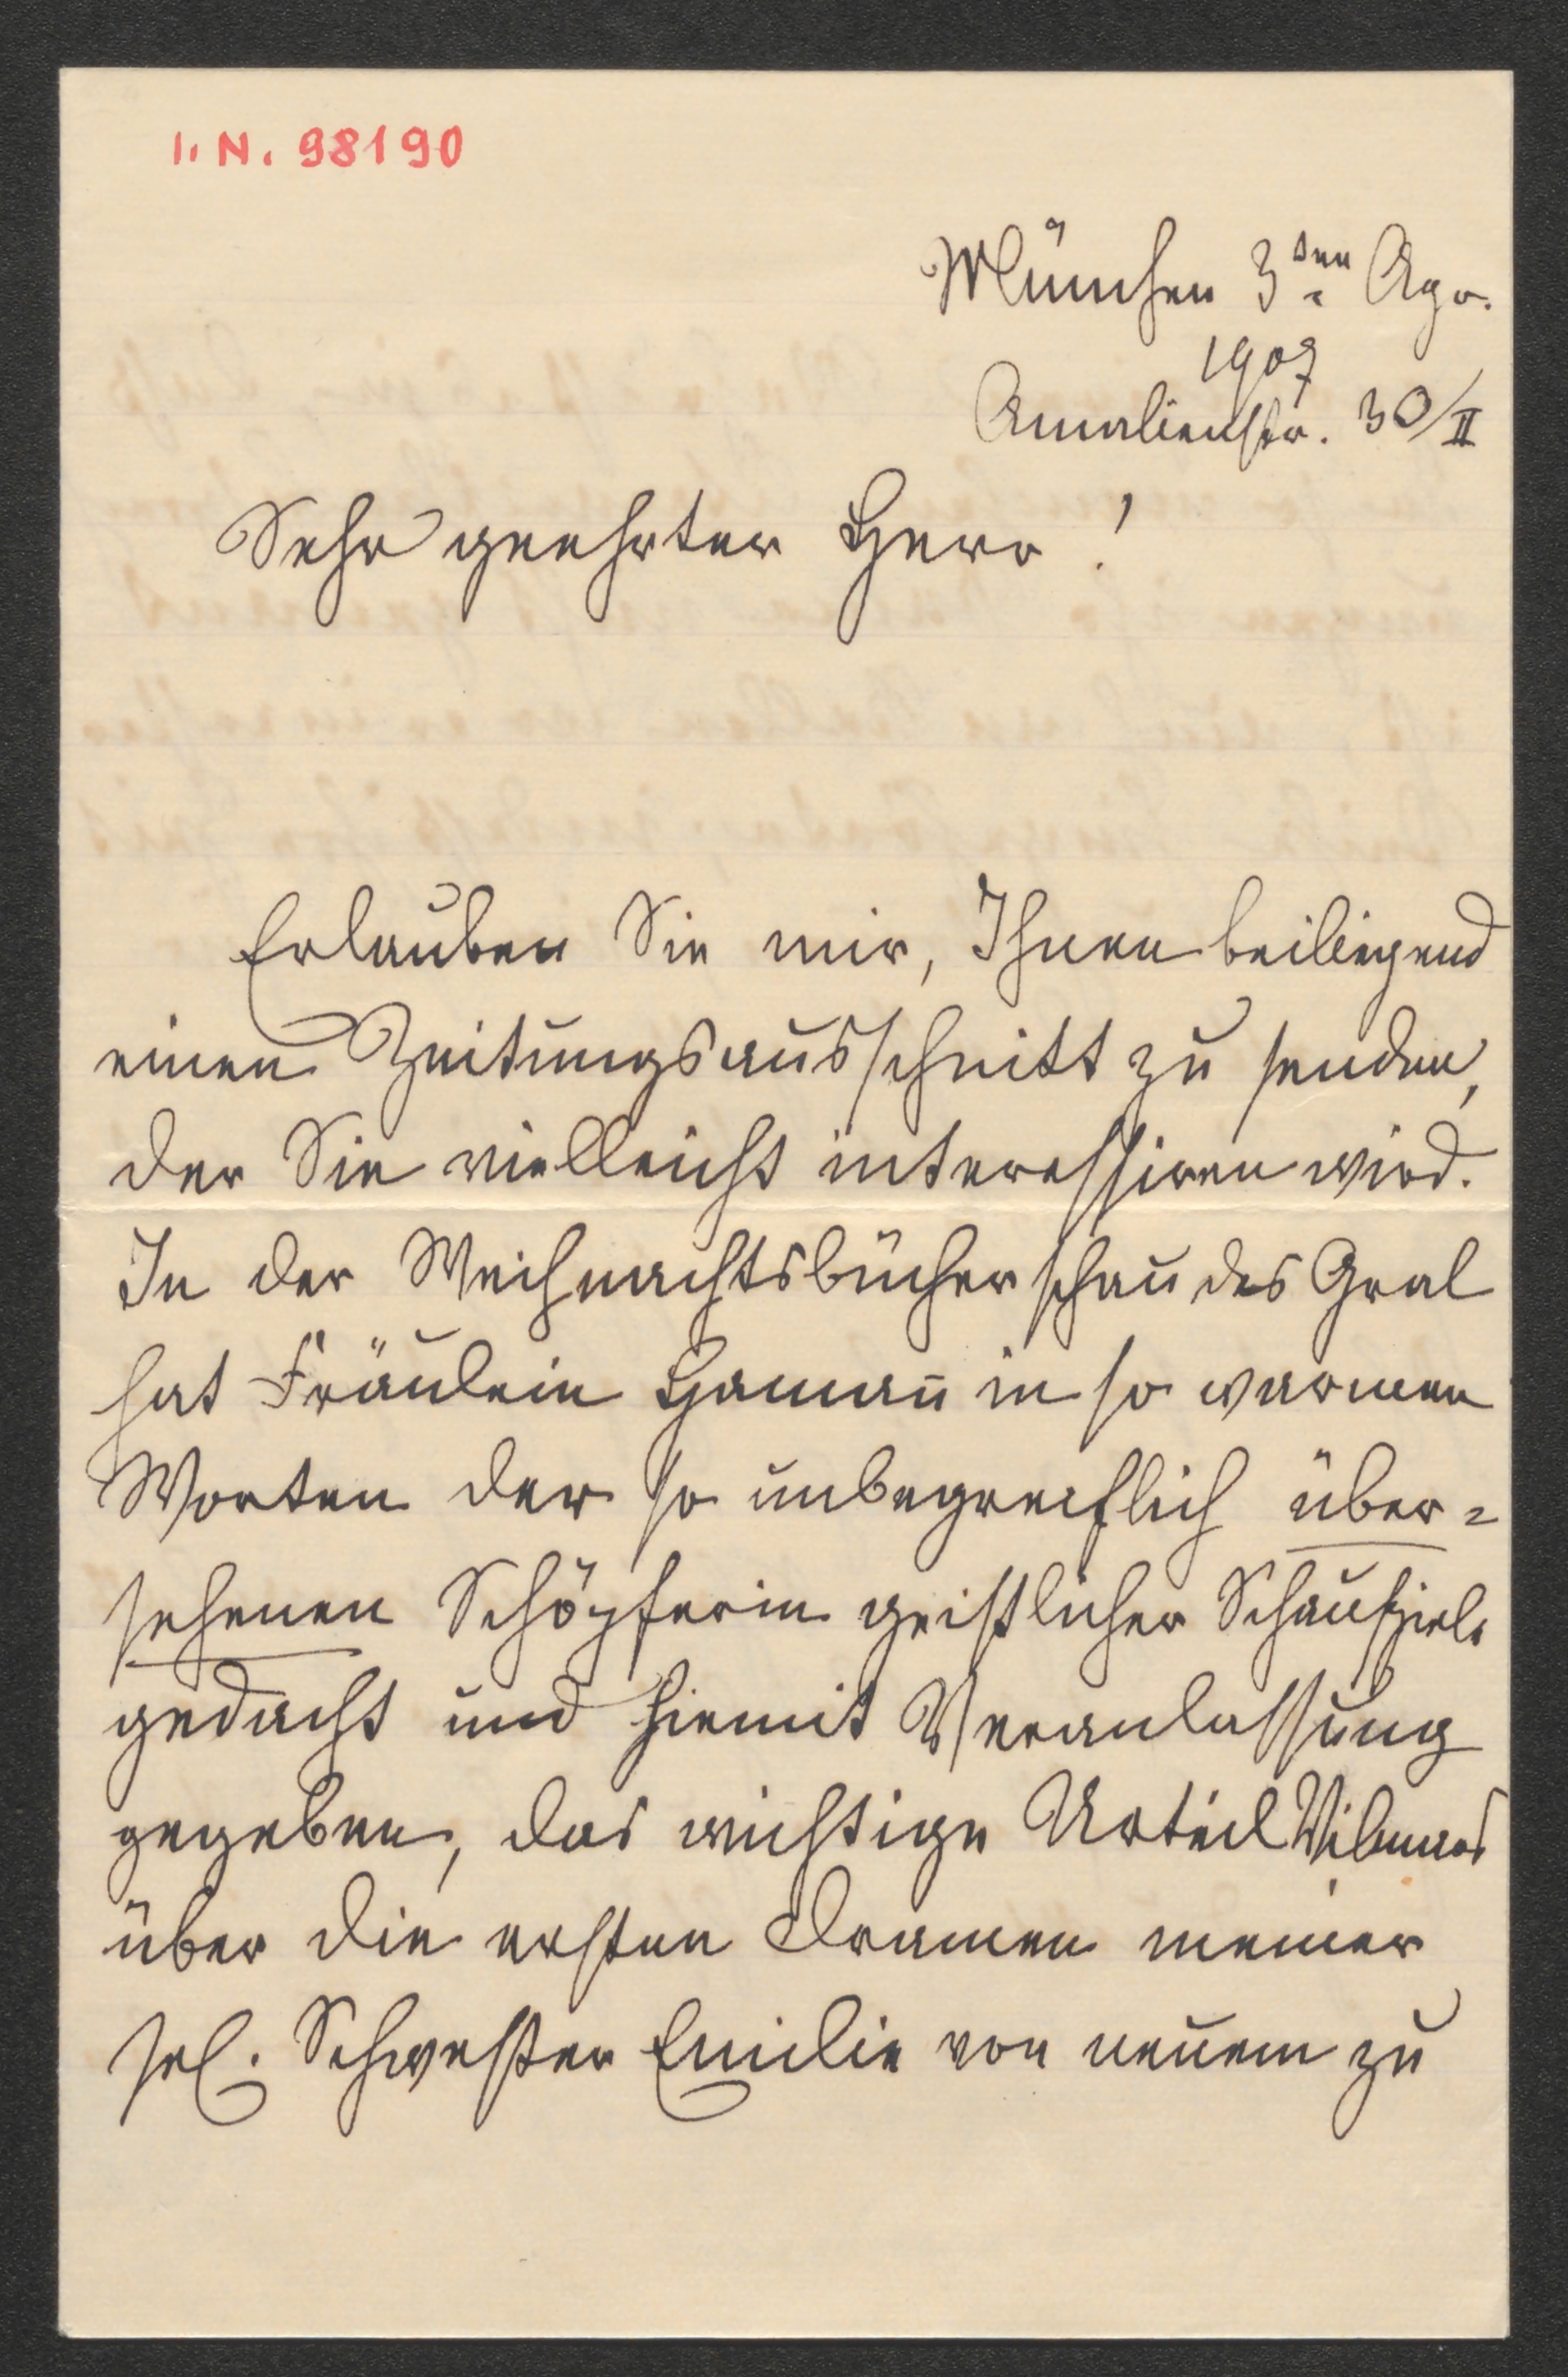 I. N. 98190
München 3ten Apr.
1907
Amalienstr. 30/II
Sehr geehrter Herr!
Erlauben Sie mir, Ihnen beiliegend
einen Zeitungsausschnitt zu senden,
der Sie vielleicht interessiren wird.
In der Weihnachtsbücherschau des Gral
hat Fräulein Hamañ in so warmen
Worten der so unbegreiflich über=
sehenen Schöpferin geistlicher Schauspiele
gedacht und hiemit Veranlassung
gegeben, das wichtige Urteil Vilmars
über die ersten Dramen meiner
sel. Schwester Emilie von neuem zu